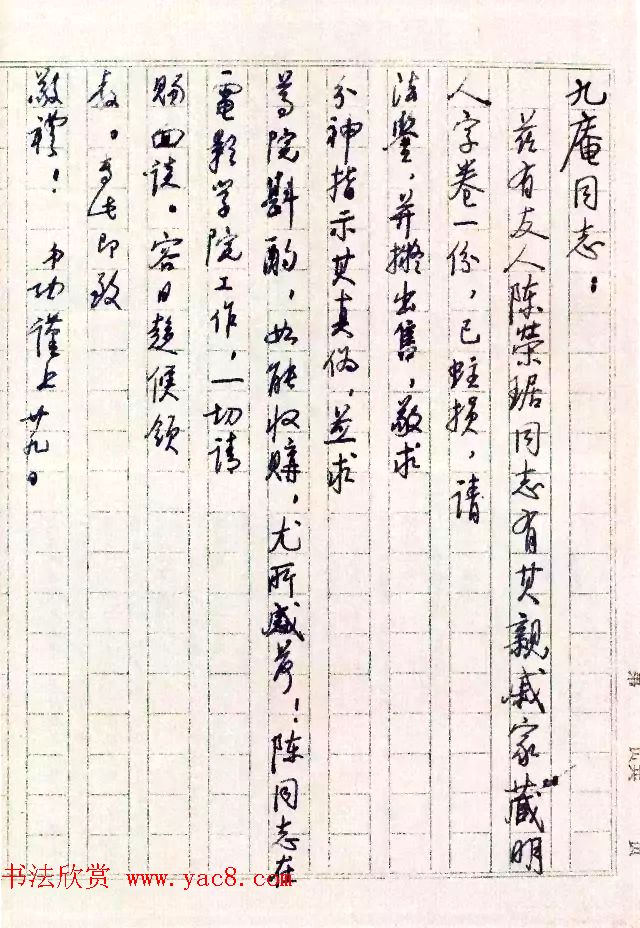 九庵同志：
兹有友人陈荣琚同志有其親戚家藏明
人字卷一份，已蛀损，请
法鉴，并擬出售，敬求
分神指示其真偽，並求
尊院斟酌，如能收購，尤所感荷！陈同志在
電影学院工作，一切请
賜面谈。容日趨候领
教。专此即致
敬禮！ 功謹上 廿九日
书法欣赏 www.yac8.com